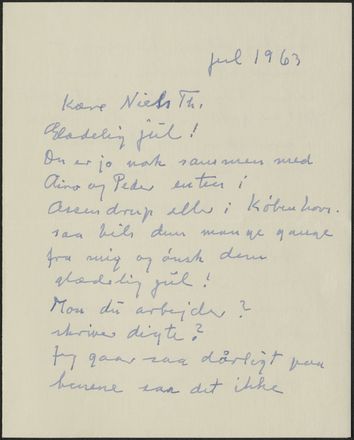 jul 1963
Kære Niels Th.
Glædelig jul!
Du er jo nok sammen med
Aino og Peder enten i
Assendrup eller i København.
saa hils dem mange gange
fra mig og ønsk dem
glædelig jul!
Mon du arbejder?
skriver digte?
Jeg gaar saa dårligt paa
benene saa det ikke